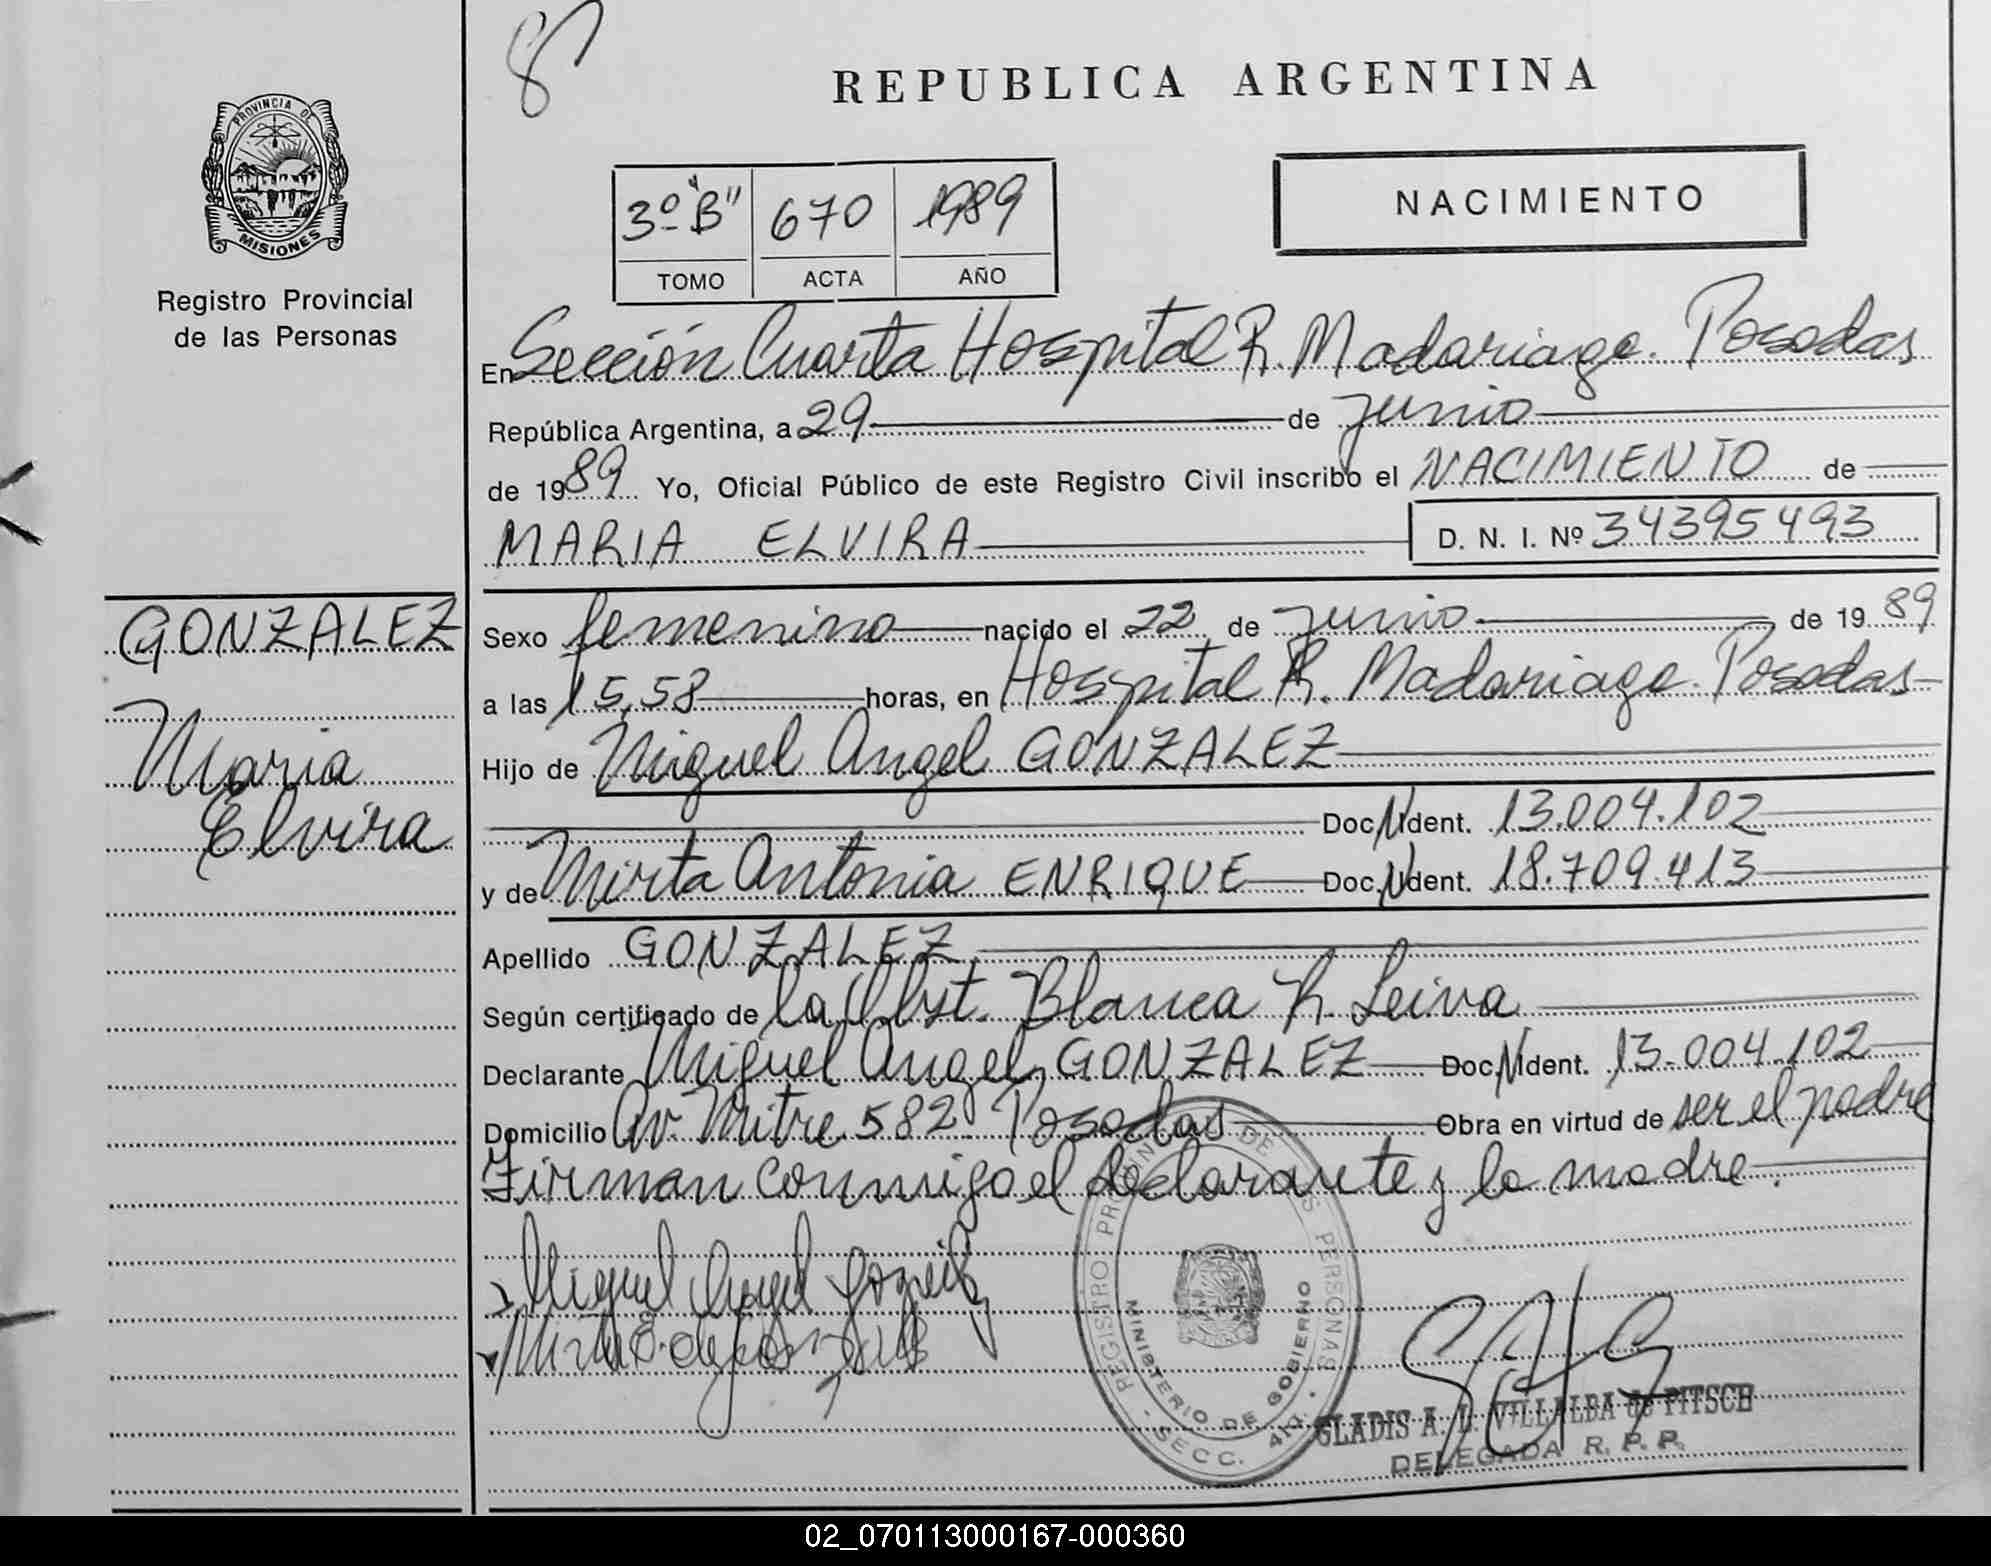 8
REPUBLICA ARGENTINA
PROVINCIA DE
MISIONES
Registro Provincial
de las Personas
3º "B" 670 1989
TOMO ACTA AÑO
NACIMIENTO
En Sección Cuarta Hospital R. Madariaga. Posadas
República Argentina, a 29 de junio
de 1989 Yo, Oficial Público de este Registro Civil inscribo el NACIMIENTO de
MARIA ELVIRA D. N. I. Nº 34395493
GONZALEZ
Maria
Elvira
Sexo femenino nacido el 22 de junio de 1989
a las 15,58 horas, en Hospital R. Madariaga. Posadas
Hijo de Miguel Angel GONZALEZ
Doc. Ident. 13.004.102
y de Mirta Antonia ENRIQUE Doc. Ident. 18.709.413
Apellido GONZALEZ
Según certificado de la Obst. Blanca R. Leiva
Declarante Miguel Angel GONZALEZ Doc. Ident. 13.004.102
Domicilio Av. Mitre 582. Posadas Obra en virtud de ser el padre
Firman conmigo el declarante y la madre.
Miguel Angel
REGISTRO PROVINCIAL DE LAS PERSONAS
MINISTERIO DE GOBIERNO
- SECC. 4ta. -
GLADIS A. L. VILLALBA de PITSCH
DELEGADA R. P. P.
02_070113000167-000360